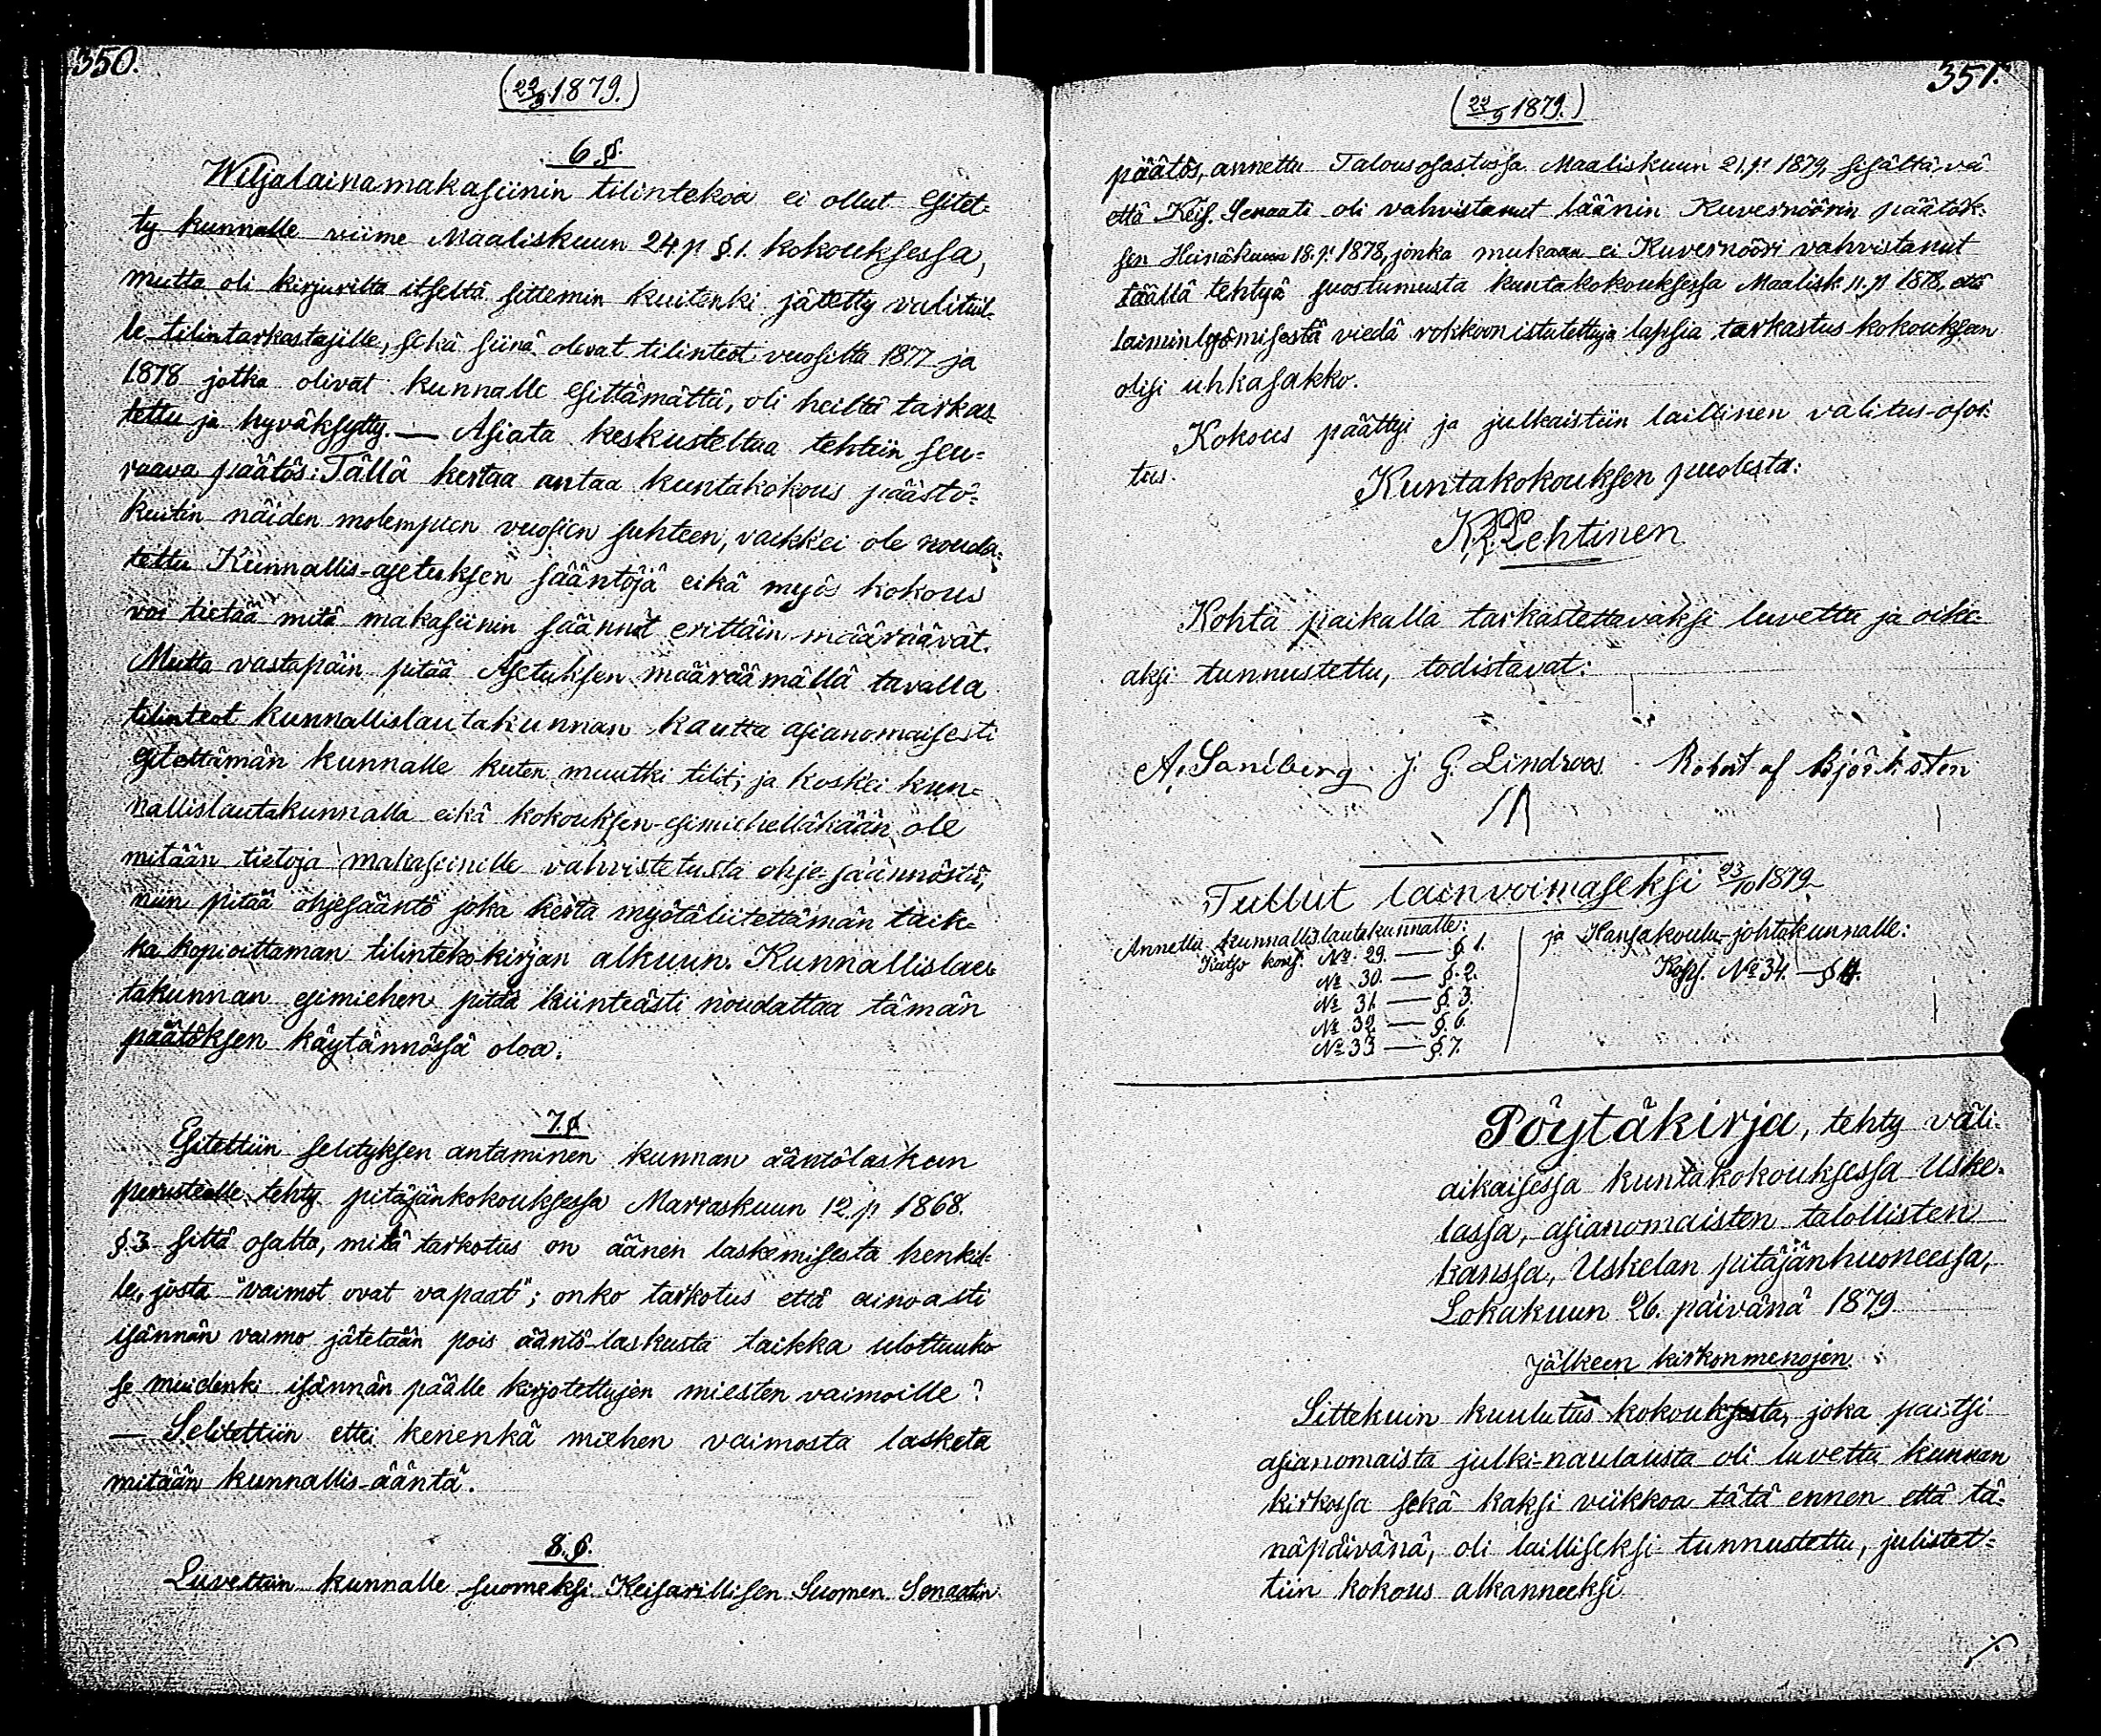 350.
(22/9 1879.)
6 §.
Wiljalainamakasiinin tilintekoa ei ollut esitet-
ty kunnalle viime Maaliskuun 24 p §.1. kokouksessa,
mutta oli kirjurilta itseltä sittemin kuitenki jätetty valituil-
le tilintarkastajille, sekä siinä olevat tilinteot vuosilta 1877 ja
1878 jotka olivat kunnalle esittämättä, oli heiltä tarkas-
tettu ja hyväksytty. — Asiata keskusteltua tehtiin seu-
raava päätös: Tällä kertaa antaa kuntakokous päästö-
kuitin näiden molempien vuosien suhteen, vaikkei ole nouda-
tettu Kunnallis-asetuksen sääntöjä eikä myös kokous
voi tietää mitä makasiinin säännöt erittäin määräävät.
Mutta vastapäin pitää Asetuksen määräämällä tavalla
tilinteot kunnallislautakunnan kautta asianomaisesti
esitettämän kunnalle kuten muutki tilit; ja koskei kun-
nallislautakunnalla eikä kokouksen-esimiehelläkään ole
mitään tietoja makasiinille vahvistetusta ohje-säännöstä,
niin pitää ohjesääntö joka kerta myötäliitettämän taik-
ka kopioittaman tilinteko-kirjan alkuun. Kunnallislau-
takunnan esimiehen pitää kiinteästi noudattaa tämän
päätöksen käytännössä oloa.
7.§
Esitettiin selityksen antaminen kunnan ääntölaskun
perusteelle tehty pitäjänkokouksessa Marraskuun 12. p 1868.
§.3 siltä osalta, mitä tarkotus on äänen laskemisesta henkil-
le, josta "vaimot ovat vapaat"; onko tarkotus että ainoasti
isännän vaimo jätetään pois ääntö-laskusta taikka ulottuuko
se muidenki isännän päälle kirjotettujen miesten vaimoille?
— Selitettiin ettei kenenkä miehen vaimosta lasketa
mitään kunnallis-ääntä.
8.§.
Luvettiin kunnalle suomeksi Keisarillisen Suomen Senaatin
351.
(22/9 1879.)
päätös, annettu Talousosastossa Maaliskuun 21.p. 1879, sisältävä
että Keis. Senaati oli vahvistanut läänin Kuvernöörin päätök-
sen Heinäkuun 18.p. 1878, jonka mukaan ei Kuvernööri vahvistanut
täällä tehtyä suostumusta kuntakokouksessa Maalisk 11.p 1878, että
laiminlyömisestä viedä rokkoon istutettuja lapsia tarkastus kokouksen
olisi uhkasakko.
Kokous päättyi ja julkaistiin laillinen valitus-osoi-
tus.
Kuntakokouksen puolesta:
K. Lehtinen
Kohta paikalla tarkastettavaksi luvettu ja oike-
aksi tunnustettu, todistavat:
A. Sandberg J. G. Lindroos Robert af Björksten
Tullut lainvoimaseksi 23/10 1879
Annettu Kunnallislautakunnalle:
Katso kons. No. 29. — §. 1.
No. 30. — §. 2.
No 31. — §. 3.
No 32 — §. 6.
No 33 — §. 7.
ja Kansakoulu-johtokunnalle:
No 34. — § 4.
Pöytäkirja, tehty väli-
aikaisessa kuntakokouksessa Uske-
lassa, asianomaisten talollisten
kanssa, Uskelan pitäjänhuoneessa,
Lokakuun 26. päivänä 1879
jälkeen kirkonmenojen.
Sittekuin kuulutus kokouksesta, joka paitsi
asianomaista julki-naulausta oli luvettu kunnan
kirkossa sekä kaksi viikkoa tätä ennen että tä-
näpäivänä, oli lailliseksi tunnustettu, julistet-
tiin kokous alkanneeksi